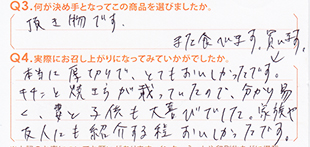 Q3.何が決め手となってこの商品を選びましたか。
頂き物です。
また食べます。買います。
Q4.実際にお召し上がりになってみていかがでしたか。
本当に厚切りで、とてもおいしかったです。
キチンと焼き方が載っていたので、分かり易
く、妻と子供も大喜びでした。家族や
友人にも紹介する程おいしかったです。